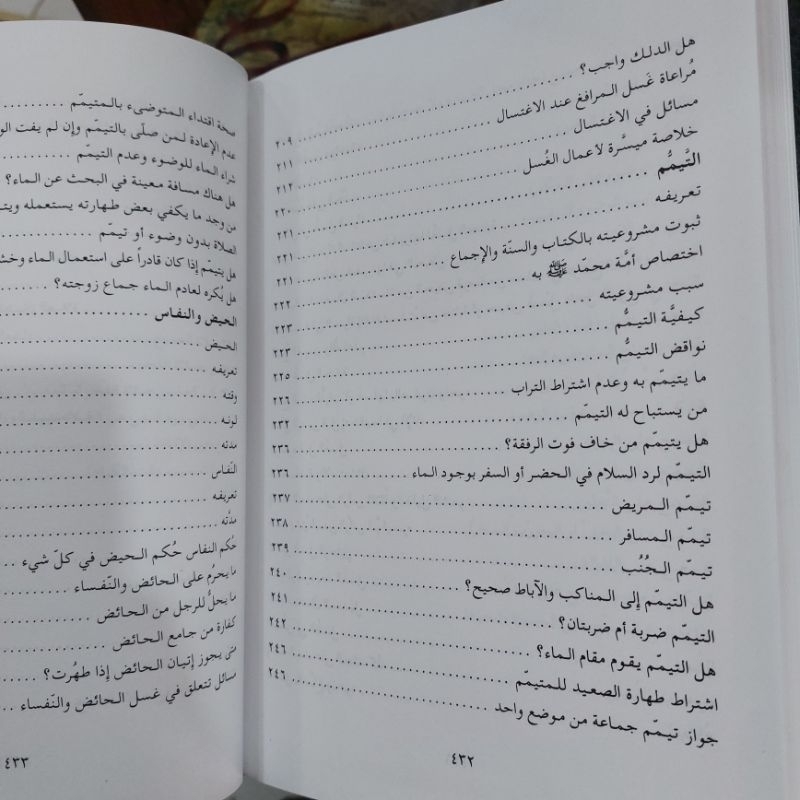 هل الدلك واجب؟ ........ ٢٠٩
مُراعاة غَسل المرافغ عند الاغتسال ........ ٢١١
مسائل في الاغتسال ........ ٢١٢
خلاصة ميسَّرة لأعمال الغُسل ........ ٢٢٠
التَّيمُّم ........ ٢٢١
تعريفه ........ ٢٢١
ثبوت مشروعيته بالكتاب والسنّة والإجماع ........ ٢٢١
اختصاص أمّة محمّد ﷺ به ........ ٢٢٢
سبب مشروعيته ........ ٢٢٣
كيفيَّة التيمُّم ........ ٢٢٣
نواقض التيمُّم ........ ٢٢٥
ما يتيمّم به وعدم اشتراط التراب ........ ٢٢٦
من يستباح له التيمّم ........ ٢٣٢
هل يتيمّم من خاف فوت الرفقة؟ ........ ٢٣٦
التيمّم لرد السلام في الحضر أو السفر بوجود الماء ........ ٢٣٦
تيمّم المريض ........ ٢٣٧
تيمّم المسافر ........ ٢٣٨
تيمّم الجُنُب ........ ٢٣٩
هل التيمّم إلى المناكب والآباط صحيح؟ ........ ٢٤٠
التيمّم ضربة أم ضربتان؟ ........ ٢٤١
هل التيمّم يقوم مقام الماء؟ ........ ٢٤٢
اشتراط طهارة الصعيد للمتيمّم ........ ٢٤٦
جواز تيمّم جماعة من موضع واحد ........ ٢٤٦
٤٣٢
صحة اقتداء المتوضىء بالمتيمّم ........
عدم الإعادة لمن صلّى بالتيمّم وإن لم يفت
شراء الماء للوضوء وعدم التيمّم ........
هل هناك مسافة معينة في البحث عن الماء؟
من وجد ما يكفي بعض طهارته يستعمله
الصلاة بدون وضوء أو تيمّم ........
هل يتيمّم إذا كان قادراً على استعمال الماء
هل يُكره لعادم الماء جماع زوجته؟ ........
الحيض والنفاس ........
الحيض ........
تعريفه ........
وقته ........
لونه ........
مدته ........
النّفاس ........
تعريفه ........
مدّته ........
حُكم النفاس حُكم الحيض في كلّ شيء ........
ما يحرُم على الحائض والنّفساء ........
ما يحلُّ للرجل من الحائض ........
كفارة من جامع الحائض ........
متى يجوز إتيان الحائض إذا طهُرت؟ ........
مسائل تتعلق في غسل الحائض والنّفساء ........
٤٣٣